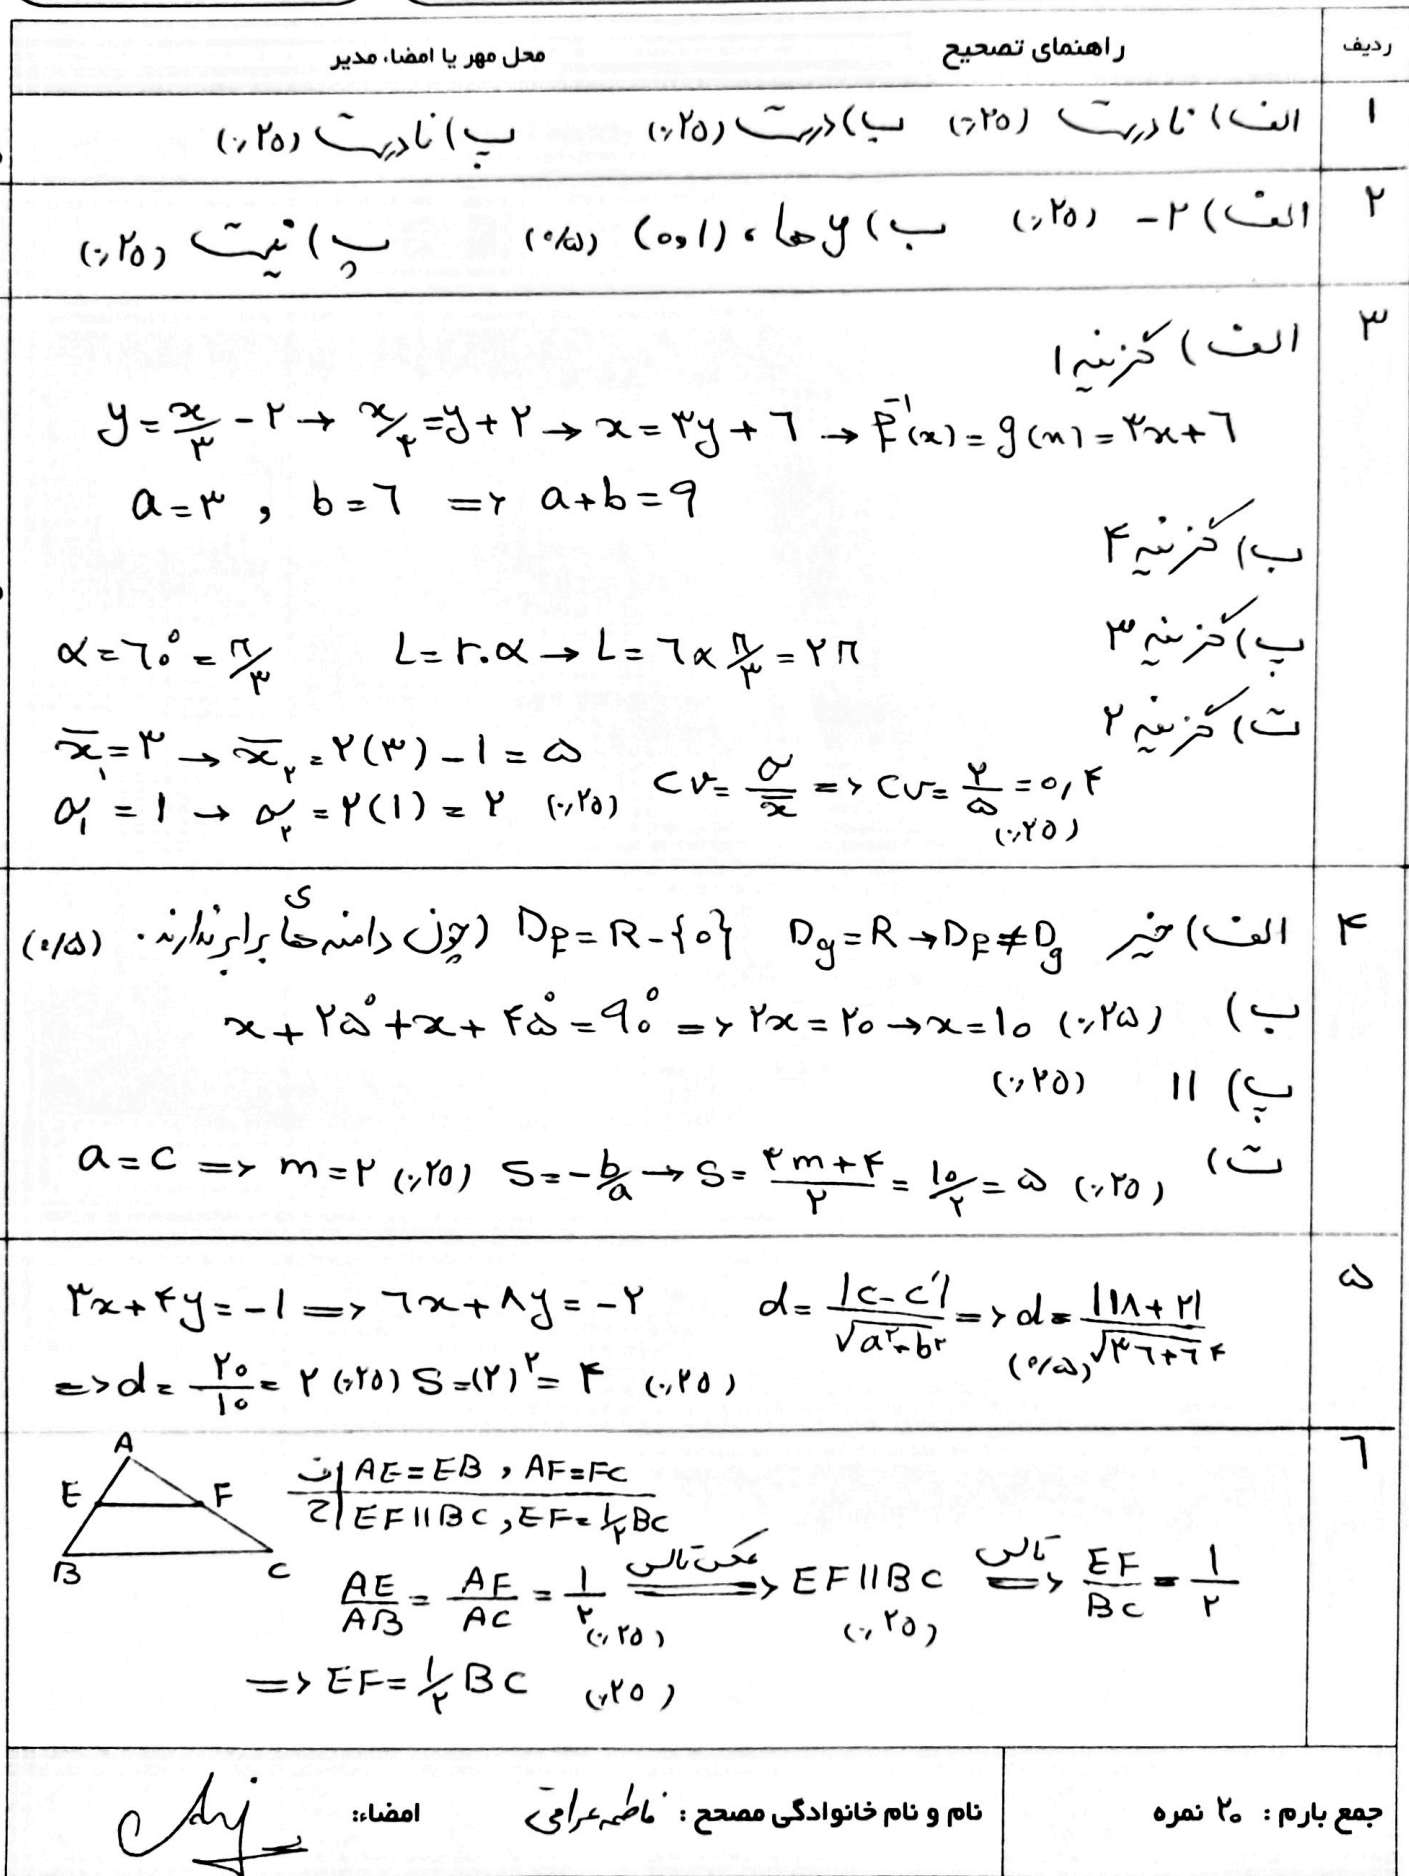 ردیف راهنمای تصحیح محل مهر یا امضاء مدیر
۱ الف) نادرست (۰,۲۵) ب) درست (۰,۲۵) پ) نادرست (۰,۲۵)
۲ الف) ۲- (۰,۲۵) ب) yها ، (۰,۱) (۰/۵) پ) نیست (۰,۲۵)
۳ الف) گزینه ۱
y = x/۳ - ۲ → x/۳ = y + ۲ → x = ۳y + ۶ → f⁻¹(x) = g(x) = ۳x + ۶
a = ۳ , b = ۶ => a + b = ۹
ب) گزینه ۴
پ) گزینه ۳ α = ۶۰° = π/۳ L = r.α → L = ۶ × π/۳ = ۲π
ت) گزینه ۲
x̄₁ = ۳ → x̄₂ = ۲(۳) - ۱ = ۵
σ₁ = ۱ → σ₂ = ۲(۱) = ۲ (۰,۲۵) CV = σ/x̄ => CV = ۲/۵ = ۰,۴ (۰,۲۵)
۴ الف) خیر D_f = R - {۰} D_g = R → D_f ≠ D_g (چون دامنه های برابر ندارند. (۰/۵)
ب) x + ۲۵° + x + ۴۵° = ۹۰° => ۲x = ۲۰ → x = ۱۰ (۰,۲۵)
پ) ۱۱ (۰,۲۵)
ت) a = c => m = ۲ (۰,۲۵) S = -b/a → S = (۳m + ۴)/۲ = ۱۰/۲ = ۵ (۰,۲۵)
۵ ۳x + ۴y = -۱ => ۶x + ۸y = -۲ d = |c - c'|/√(a² + b²) => d = |۱۸ + ۲|/√(۳۶ + ۶۴) (۰/۵)
=> d = ۲۰/۱۰ = ۲ (۰,۲۵) S = (۲)² = ۴ (۰,۲۵)
۶ A
E F
B C
ف | AE = EB , AF = FC
ح | EF || BC , EF = ۱/۲ BC
AE/AB = AF/AC = ۱/۲ (۰,۲۵) عکس تالس => EF || BC (۰,۲۵) تالس => EF/BC = ۱/۲
=> EF = ۱/۲ BC (۰,۲۵)
جمع بارم : ۲۰ نمره نام و نام خانوادگی مصحح : فاطمه عراقی امضاء: